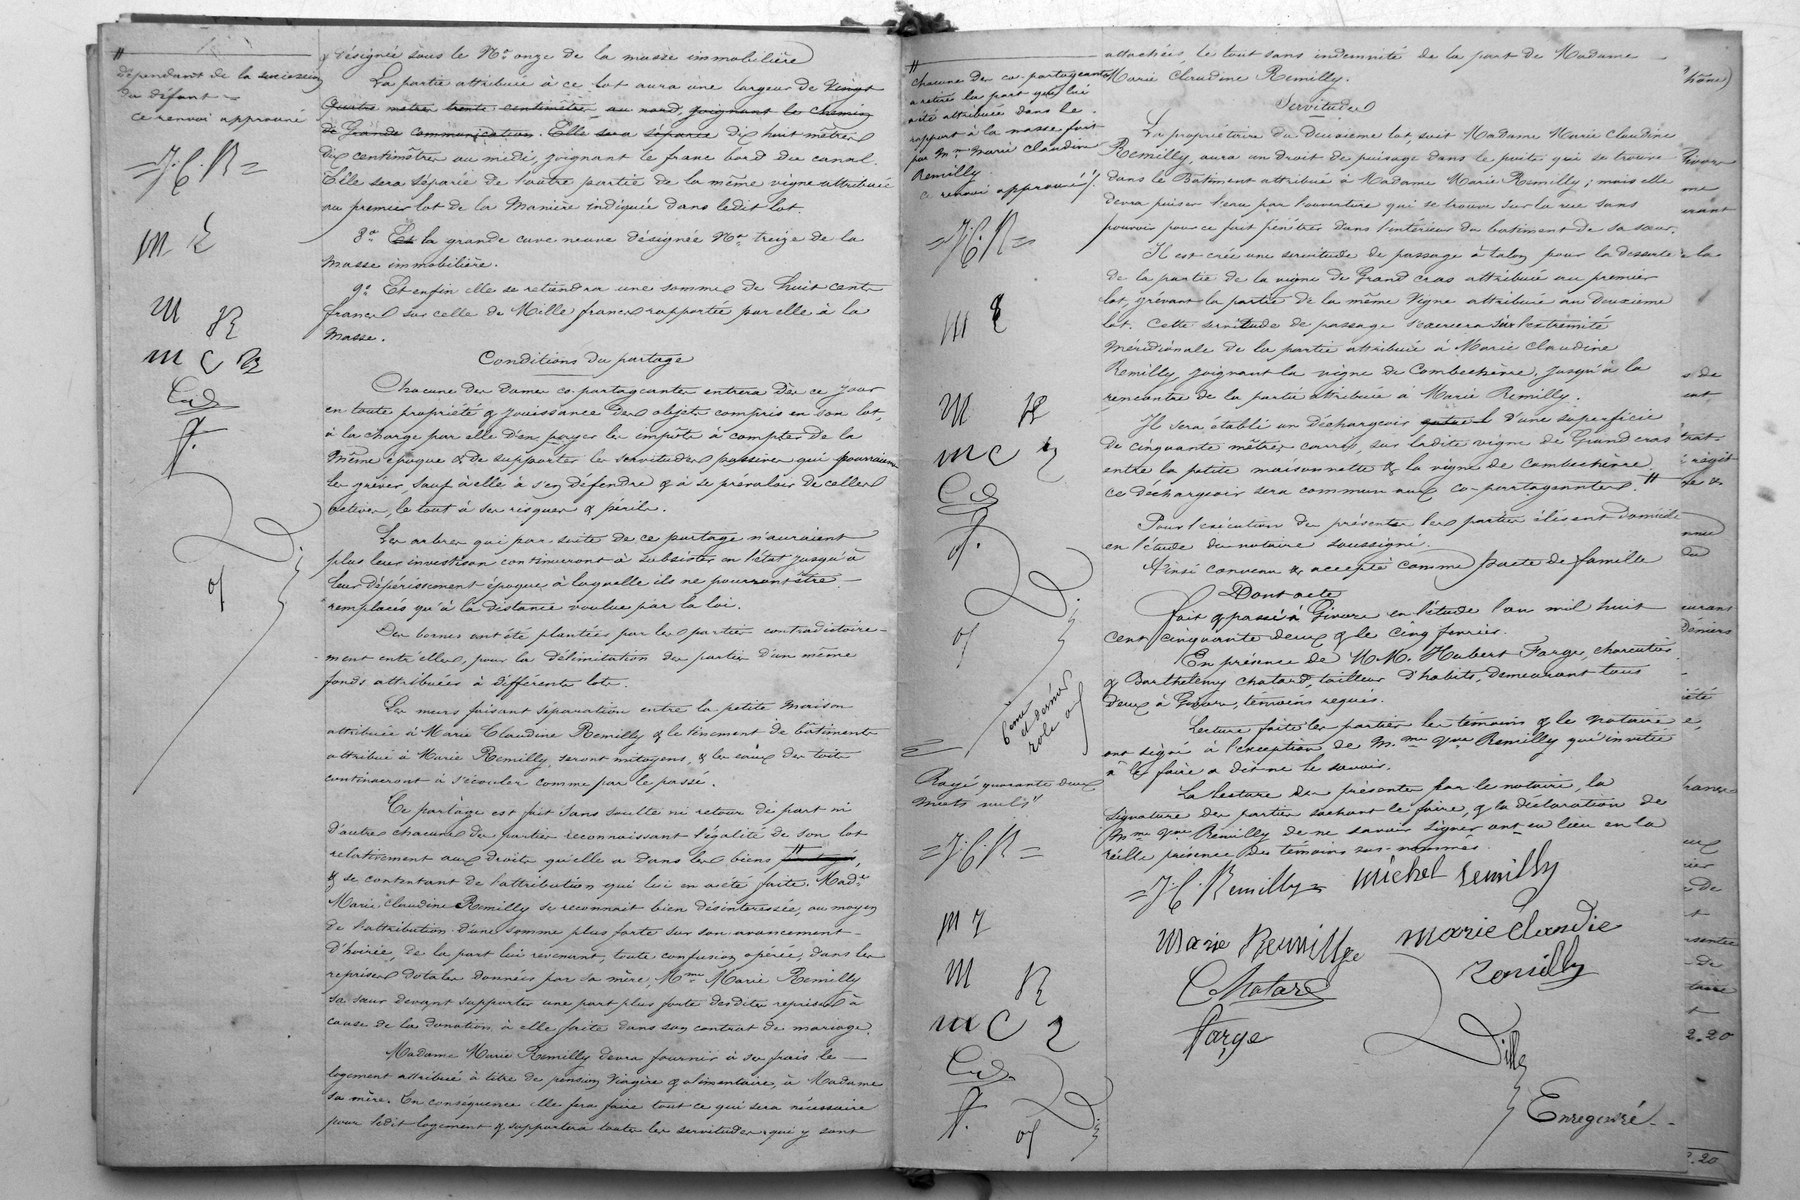 dépendant de la succession
du défunt
ce renvoi approuvé
=J.C.R=
M R
M R
M C R
désignée sous le No onze de la masse immobilière
La partie attribuée à ce lot aura une largeur de vingt
quatre mètres trente centimètres au nord, joignant le chemin
de Grande communication. Elle sera séparée dix huit mètres
dix centimètres au midi, joignant le franc bord du canal.
Elle sera séparée de l'autre partie de la même vigne attribuée
au premier lot de la manière indiquée dans ledit lot.
8o Et la grande cuve neuve désignée No treize de la
masse immobilière.
9o Et enfin elle se retiendra une somme de huit cents
francs sur celle de Mille francs rapportée par elle à la
Masse.
Conditions du partage
Chacune des dames co-partageantes entrera dès ce jour
en toute propriété & jouissance des objets compris en son lot,
à la charge par elle d'en payer les impôts à compter de la
même époque & de supporter les servitudes passives qui pourraient
les gréver, sauf à elle à s'en défendre & à se prévaloir de celles
actives, le tout à ses risques & périls.
Les arbres qui par suite de ce partage n'auraient
plus leur investison continueront à subsister en l'état jusqu'à
leur dépérissement époque à laquelle ils ne pourront être
remplacés qu'à la distance voulue par la loi.
Des bornes ont été plantées par les parties contradictoire-
ment entr'elles, pour la délimitation des parties d'un même
fonds attribuées à différents lots.
Les murs faisant séparation entre la petite maison
attribuée à Marie Claudine Remilly & le ténement de bâtiments
attribué à Marie Remilly, seront mitoyens, & les eaux des toits
continueront à s'écouler comme par le passé.
Ce partage est fait sans soulte ni retour de part ni
d'autre chacune des parties reconnaissant l'égalité de son lot
relativement aux droits qu'elle a dans les biens
& se contentant de l'attribution qui lui en a été faite. Made
Marie Claudine Remilly se reconnait bien désintéressée, au moyen
de l'attribution d'une somme plus forte sur son avancement
d'hoirie, de la part lui revenant, toute confusion opérée, dans les
reprises dotales données par sa mère, Mme Marie Remilly
sa sœur devant supporter une part plus forte desdites reprises à
cause de la donation à elle faite dans son contrat de mariage.
Madame Marie Remilly devra fournir à ses frais le
logement attribué à titre de pension viagère & alimentaire, à Madame
sa mère. En conséquence elle fera faire tout ce qui sera nécessaire
pour ledit logement & supportera toutes les servitudes qui y sont
chacune des co-partageantes
a retiré la part qui lui
a été attribuée dans le
rapport à la masse fait
par Mme Marie Claudine
Remilly
ce renvoi approuvé
=J.C.R=
M R
M R
M C R
6eme
et dernier
role
Rayé quarante deux
mots nuls
=J.C.R=
M R
M R
M C R
attachées, le tout sans indemnité de la part de Madame
Marie Claudine Remilly.
Servitudes
La propriétaire du deuxième lot, soit Madame Marie Claudine
Remilly, aura un droit de puisage dans le puits qui se trouve
dans le Bâtiment attribué à Madame Marie Remilly; mais elle
devra puiser l'eau par l'ouverture qui se trouve sur la rue sans
pouvoir pour ce fait pénétrer dans l'intérieur du bâtiment de sa sœur.
Il est créé une servitude de passage à talon pour la desserte
de la partie de la vigne de Grand cras attribuée au premier
lot, grévant la partie de la même Vigne attribuée au deuxième
lot. Cette servitude de passage s'exercera sur l'extrémité
méridionale de la partie attribuée à Marie Claudine
Remilly, joignant la vigne de Combechèvre, jusqu'à la
rencontre de la partie attribuée à Marie Remilly.
Il sera établi un déchargeoir d'une superficie
de cinquante mètres carrés, sur ladite vigne de Grand cras
entre la petite maisonnette & la vigne de Combechèvre.
ce déchargeoir sera commun aux co-partageantes.
Pour l'exécution des présentes les parties élisent domicile
en l'étude du notaire soussigné.
Ainsi convenu & accepté comme pacte de famille
Dont acte
fait & passé à Givors en l'étude l'an mil huit
cent cinquante deux & le cinq fevrier.
En présence de M.M. Hubert Farge, charcutier
& Barthélemy Chatard, tailleur d'habits, demeurant tous
deux à Givors, témoins requis.
Lecture faite les parties les témoins & le notaire
ont signé à l'exception de Mme Vve Remilly qui invitée
à le faire a dit ne le savoir.
La lecture des présentes par le notaire, la
signature des parties sachant le faire, & la déclaration de
Mme Vve Remilly de ne savoir signer ont eu lieu en la
réelle présence des témoins sus-nommés.
=J.C. Remilly= michel remilly
Marie Remillye marie claudie
remilly
Chatard
Farge
Dille
Enregistré
2.20